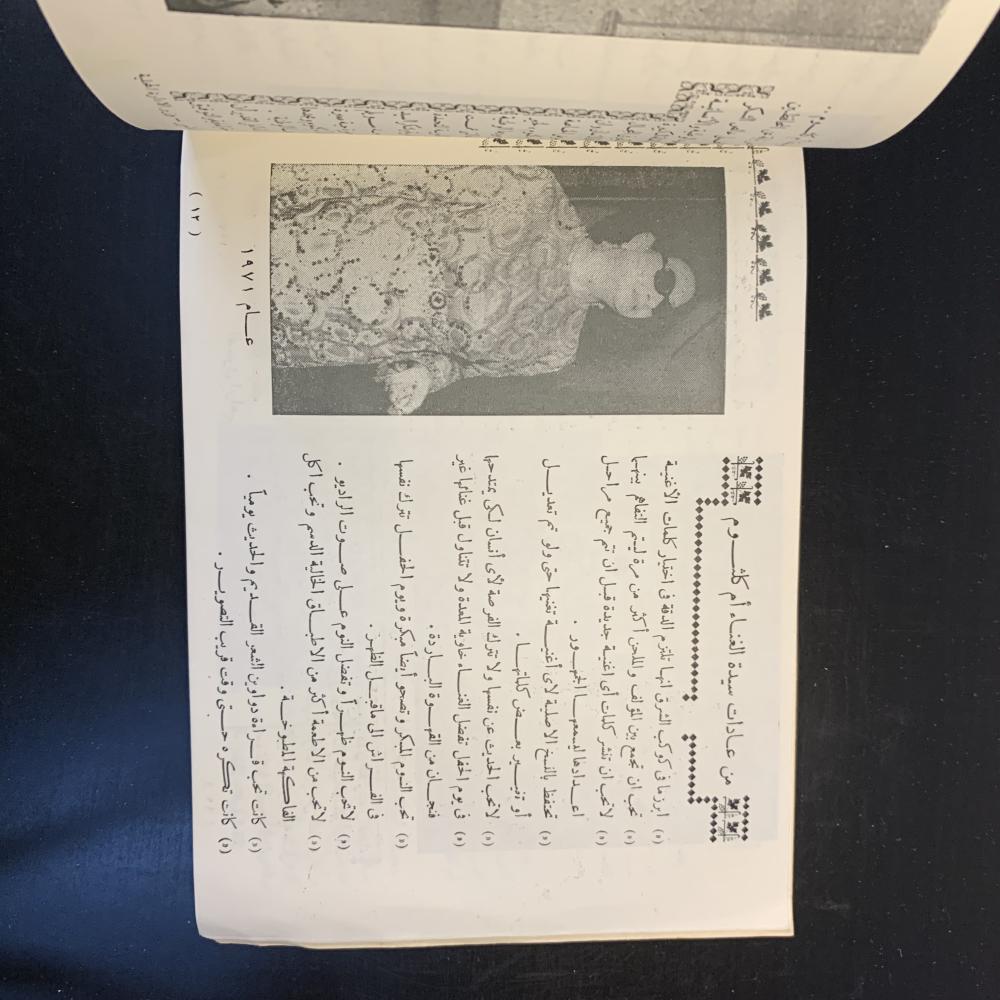 من عادات سيدة الغناء أم كلثوم
(٥) ابرز ما فى كوكب الشرق انها تلتزم الدقة فى اختيار كلمات الأغنية
(٥) تحب ان تجمع بين المؤلف والملحن أكثر من مرة ليتم التفاهم بينهما
(٥) لاتحب ان تنشر كلمات أى اغنية جديدة قبل ان تتم جميع مراحل
اعدادها ليسمعها الجمهور .
(٥) تحتفظ بالنسخ الاصلية لأى أغنية تغنيها حتى ولو تم تعديل
أو تغيير بعض كلماتها .
(٥) لاتحب الحديث عن نفسها ولا تترك الفرصة لأى أنسان لكى يمتدحها
(٥) فى يوم الحفل تفضل الغناء خاوية المعدة ولا تتناول قبل غنائها غير
فنجان من القهوة الباردة .
(٥) تحب النوم المبكر وتصحو أيضاً مبكرة ويوم الحفل تترك نفسها
فى الفراش الى ماقبل الظهر .
(٥) لاتحب النوم ظهراً وتفضل النوم على صوت الراديو .
(٥) لاتحب من الاطعمة أكثر من الاطباق الخالية الدسم وتحب اكل
الفاكهة المطبوخة .
(٥) كانت تحب قراءة دواوين الشعر القديم والحديث يومياً .
(٥) كانت تكره حتى وقت قريب التصوير .
عام ١٩٧١
( ١٢ )